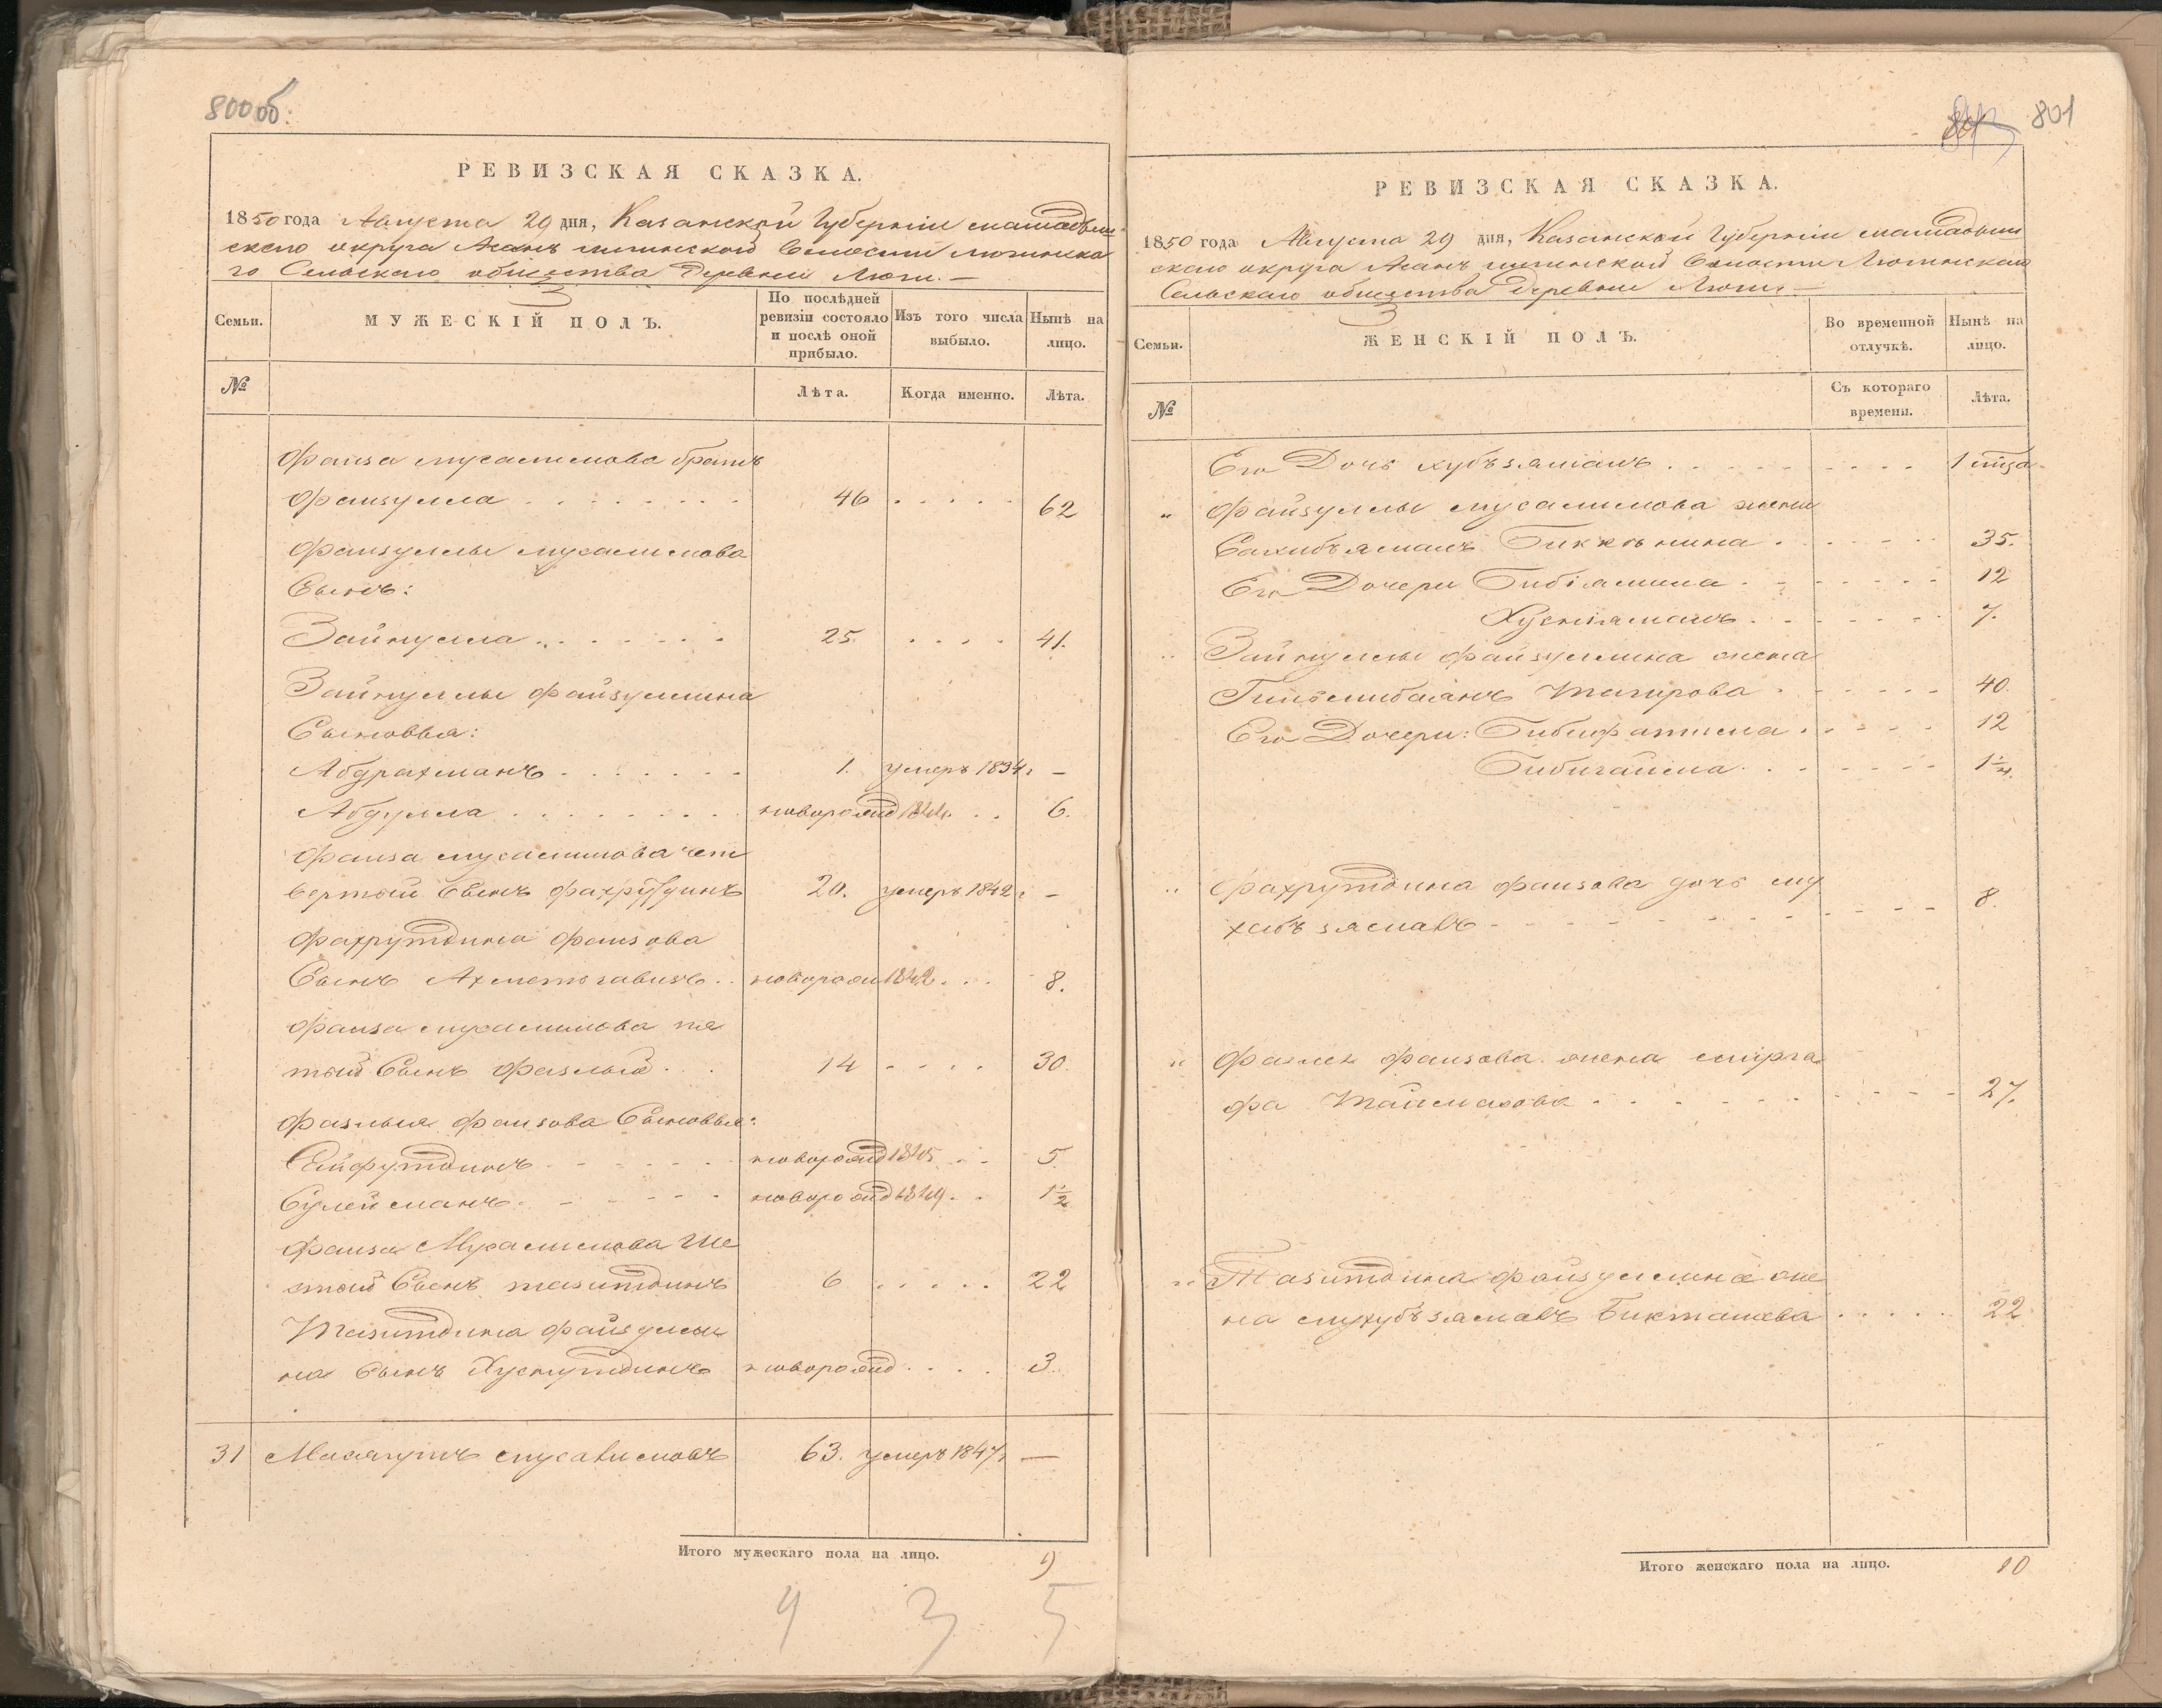 800 об:
РЕВИЗСКАЯ СКАЗКА.
1850 года Августа 29 дня, Казанской Губернiи мамадыш
скаго округа волости лютинска
го Сельскаго общества Деревни Люги. —
Семьи.
МУЖЕСКIЙ ПОЛЪ.
По послѣдней ревизiи состояло и послѣ оной прибыло.
Изъ того числа выбыло.
Нынѣ на лицо.
№
Лѣта.
Когда именно.
Лѣта.
Фаиза мусалимова братъ
Фаизулла . . . . . . . 46 . . . . . 62
Фаизуллы мусалимова
Сынъ:
Зайнулла . . . . . . . 25. . . . . 41.
Зайнуллы файзуллина
Сыновья:
Абдрахманъ . . . . . . 1. умеръ 1834 г —
Абдулла . . . . . . . . новорожд 1844 . . 6.
Фаиза мусалимова чет
вертый Сынъ фахрутдинъ 20. умеръ 1842 г —
Фахрутдина фаизова
Сынъ Ахметъгавизъ . . новорож 1842 . . . 8.
Фаиза мусалимова пя
тый Сынъ Фазлый . . 14 . . . . 30.
Фазлыя фаизова Сыновья:
Сейфутдинъ . . . . . новорожд 1845 . . . 5.
Сулейманъ . . . . . новорожд 1849 . . 1½
Фаиза Мусалимова ше
стый Сынъ тазитдинъ 6 . . . . . 22
Тазитдина файзулли
на Сынъ Хуснутдинъ новорожд . . . . 3.
31 мусалимовъ 63. умеръ 1847 г —
Итого мужескаго пола на лицо. 9
9 3 5
801
РЕВИЗСКАЯ СКАЗКА.
1850 года Августа 29 дня, Казанской Губернiи мамадыш
скаго округа волости Лютинскаго
Сельскаго общества Деревни Люги —
Семьи.
ЖЕНСКIЙ ПОЛЪ.
Во временной отлучкѣ.
Нынѣ на лицо.
№
Съ котораго времени.
Лѣта.
Его Дочь хубъзямалъ . . . . . . . . . . 1 года
" Файзуллы мусалимова жена
Сахибъямалъ Биккѣнина . . . . . . 35.
Его Дочери Бибiямина . . . . . . . 12
Хуснiямалъ . . . . . . . 7.
" Зайнуллы файзуллина жена
Тагирова . . . . . . 40.
Его Дочери: Бибифатима . . . . . 12
. . . . . . . 1¼.
" Фахрутдина фаизова дочь му
хибъзямалъ . . . . . . . . . . . 8.
" Фазлея фаизова жена
фа . . . . . . . . . . 27.
" Тазитдина файзуллина же
на мухубъзямалъ Бикташева . . . . . 22.
Итого женскаго пола на лицо. 10